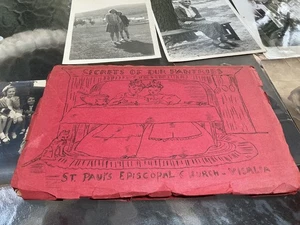 SECRETS OF OUR
ST. PAUL'S EPISCOPAL CHURCH - VISALIA